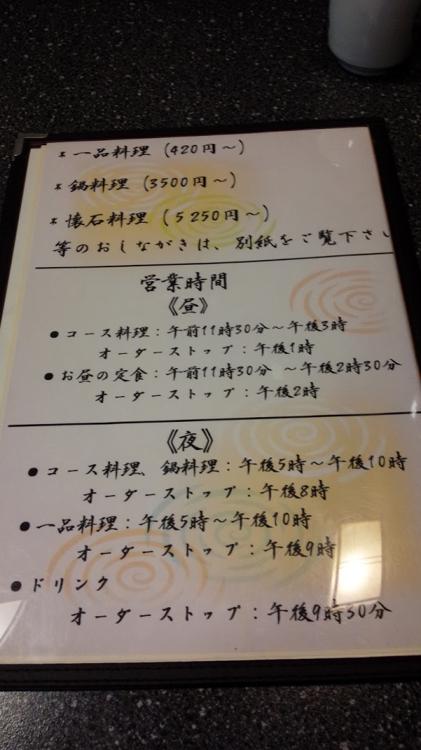 * 一品料理 (420円～)
* 鍋料理 (3500円～)
* 懐石料理 (5250円～)
等のおしながきは、別紙をご覧下さい
営業時間
《昼》
●コース料理：午前11時30分～午後3時
オーダーストップ：午後1時
●お昼の定食：午前11時30分 ～午後2時30分
オーダーストップ：午後2時
《夜》
●コース料理、鍋料理：午後5時～午後10時
オーダーストップ：午後8時
●一品料理：午後5時～午後10時
オーダーストップ：午後9時
●ドリンク
オーダーストップ：午後9時30分